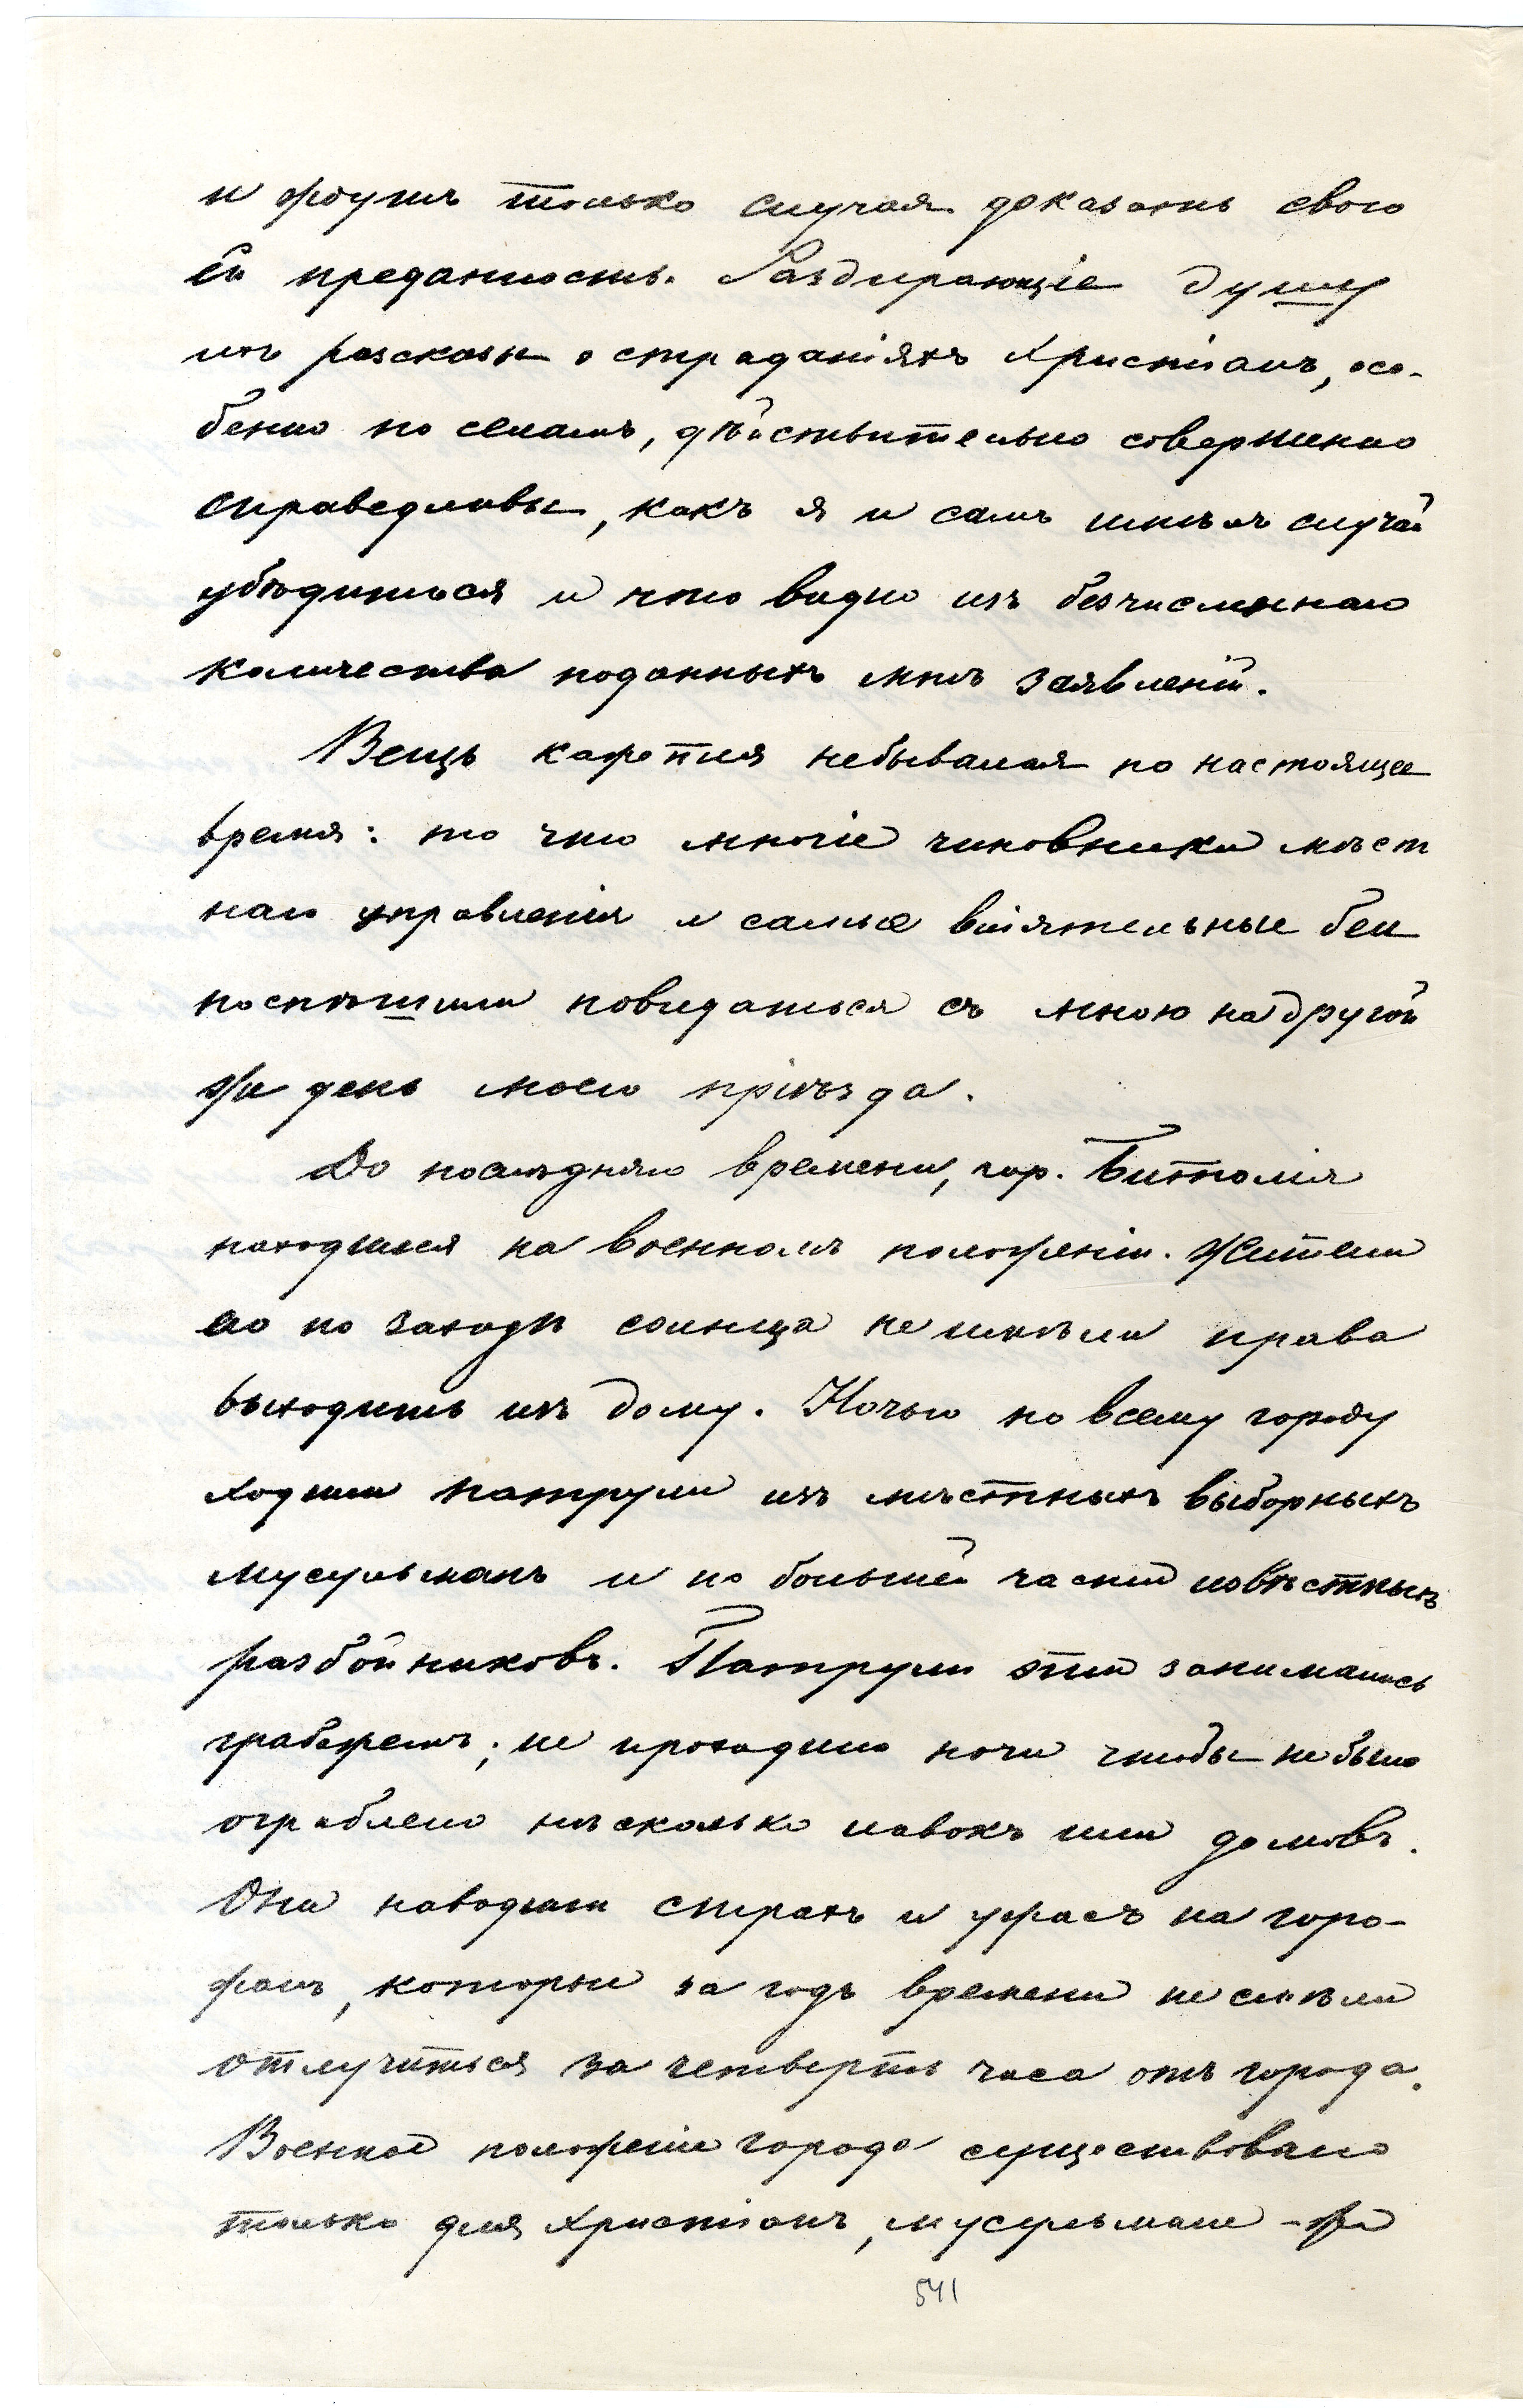 и ждутъ только случая доказать свою
Ей преданность. Раздирающіе душу
ихъ разсказы о страданіяхъ Христіанъ, осо-
бенно по селамъ, дѣйствительно совершенно
справедливы, какъ я и самъ имѣлъ случай
убѣдиться и что видно изъ безчисленнаго
количества поданныхъ мнѣ заявленій.
Вещь кажется небывалая по настоящее
время: то что многіе чиновники мѣст
наго управленія и самые вліятельные беи
поспѣшили повидаться съ мною на другой
же день моего пріѣзда.
До послѣдняго времени, гор. Битолія
находился на военномъ положеніи. Жители
его по заходѣ солнца не имѣли права
выходить изъ дому. Ночью по всему городу
ходили патрули изъ мѣстныхъ выборныхъ
мусульманъ и по большей части извѣстныхъ
разбойниковъ. Патрули эти занимались
грабежемъ; не проходило ночи чтобы не было
ограблено нѣсколько лавокъ или домовъ.
Они наводили страхъ и ужасъ на горо-
жанъ, которые за годъ времени не смѣли
отлучиться за четверть часа отъ города.
Военное положеніе города существовало
только для Христіанъ, мусульмане-же
541